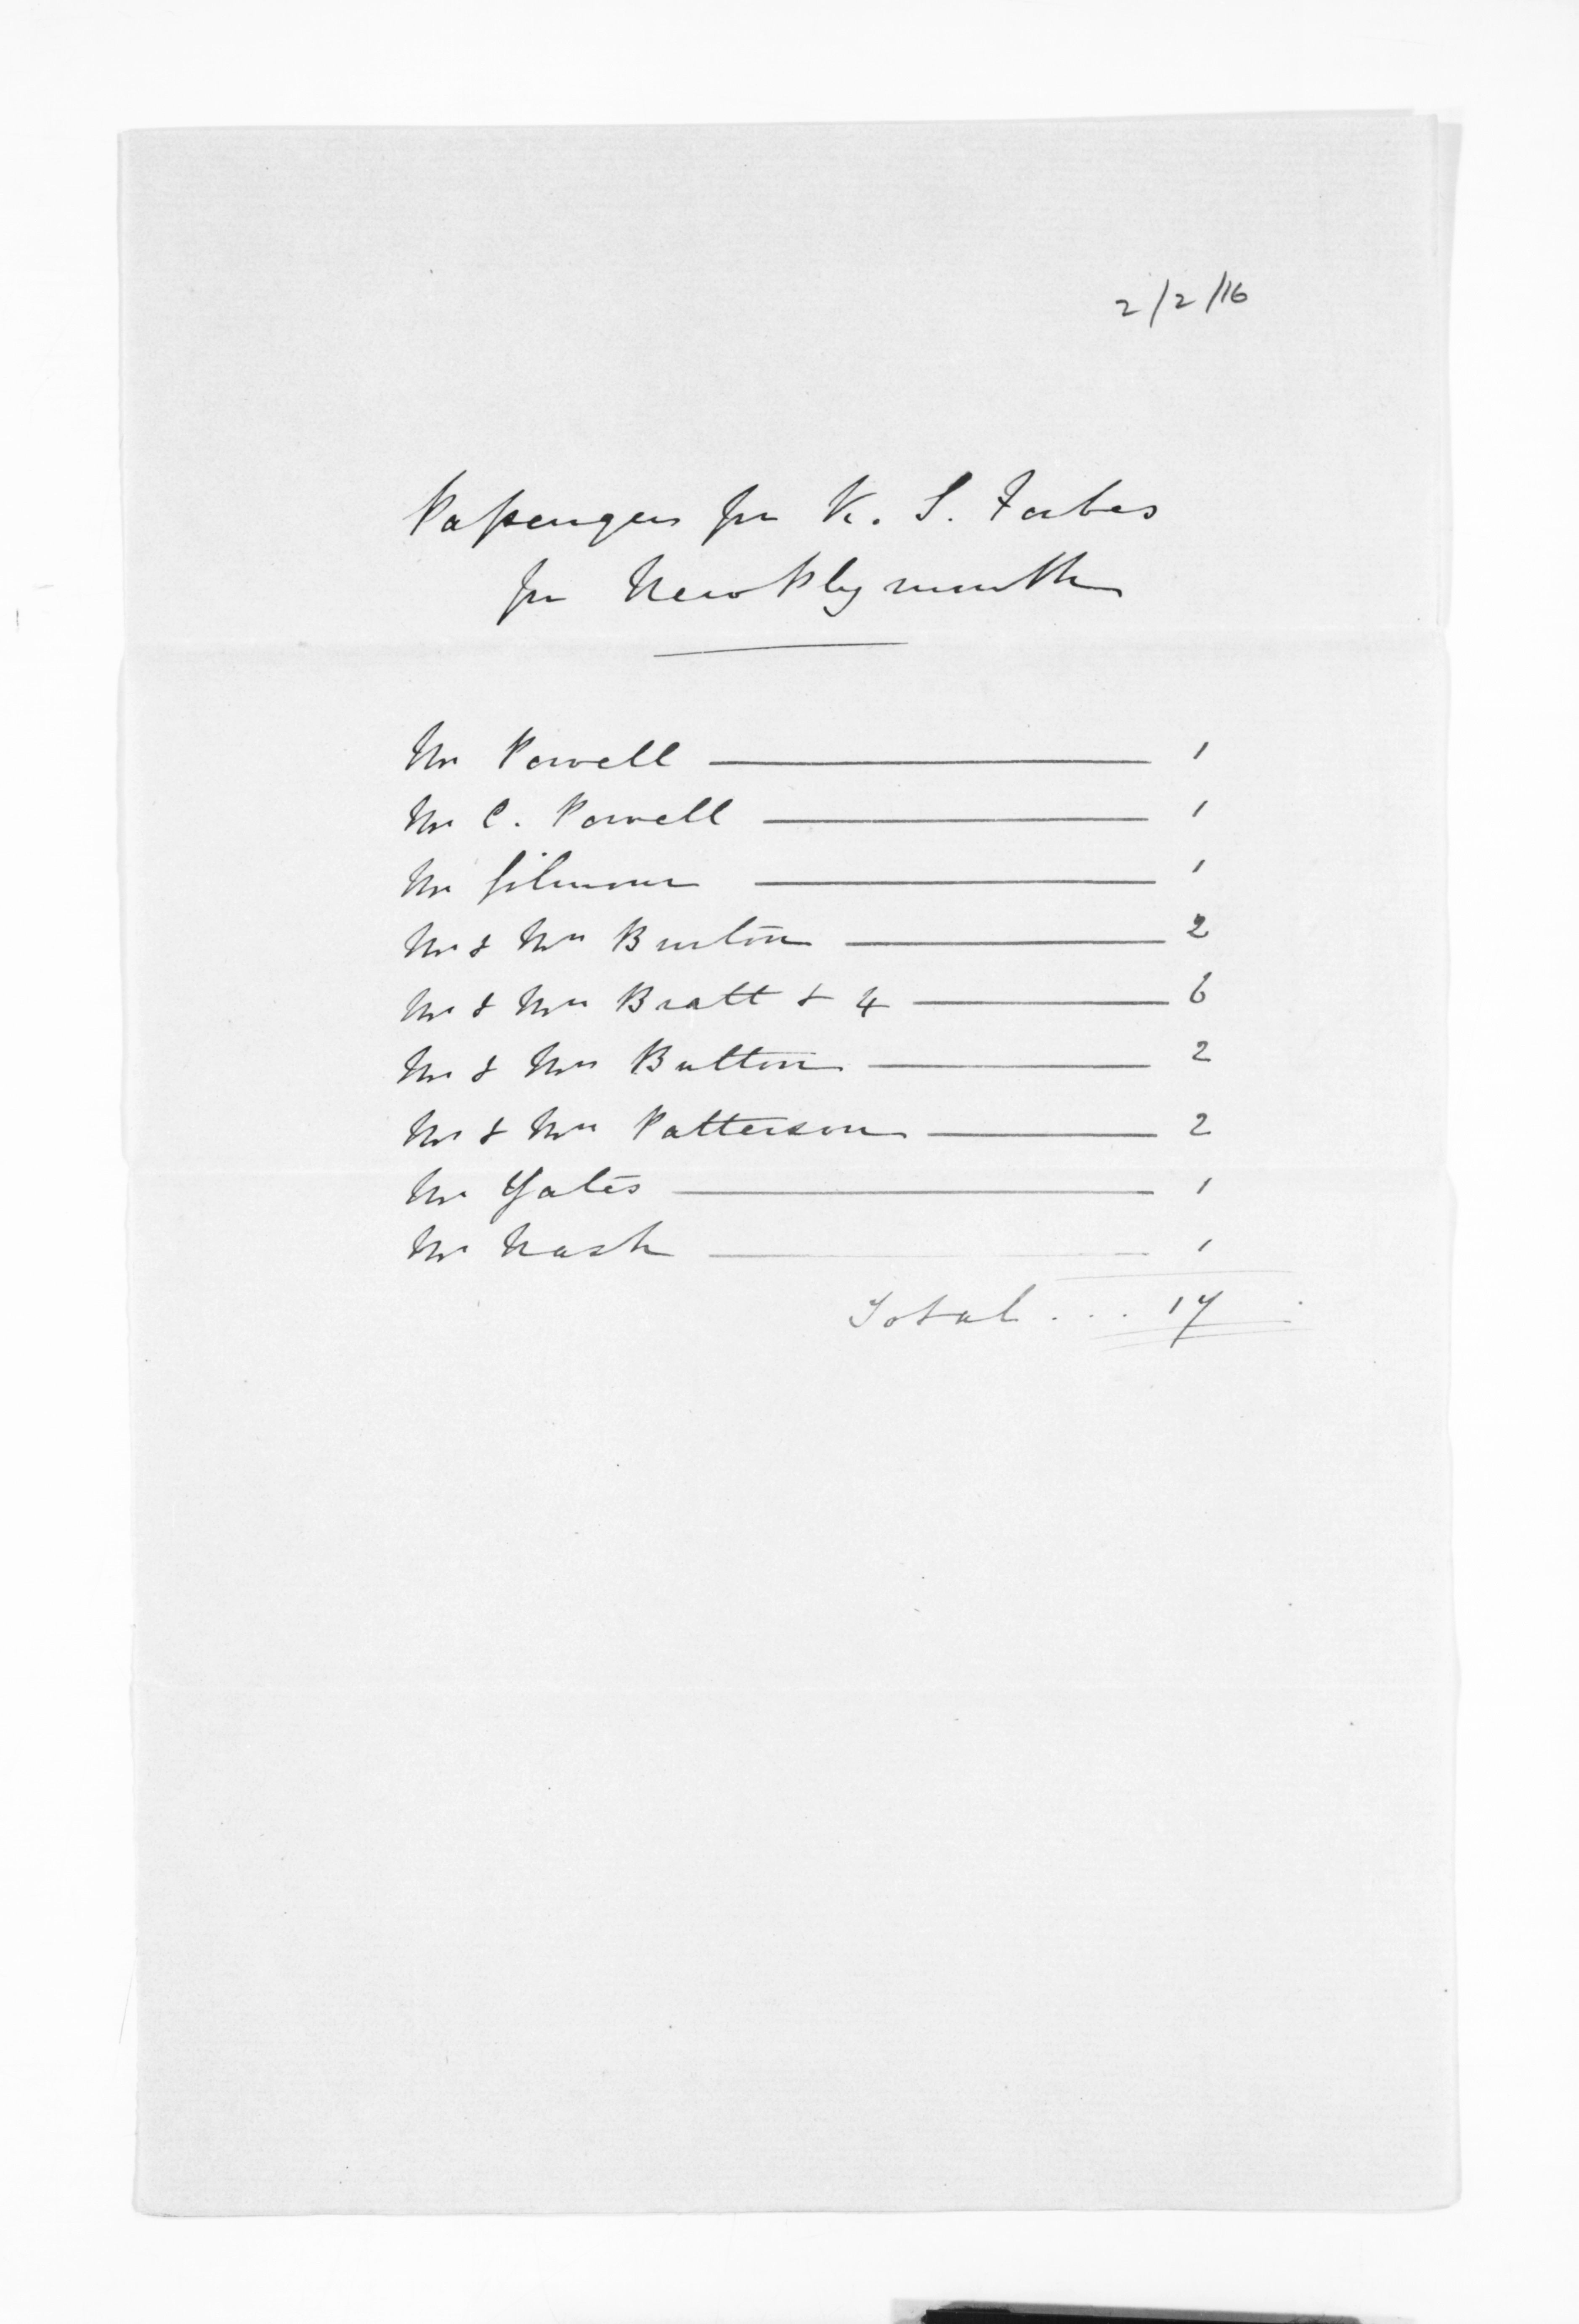 2/2/16
Passengers per K. S. Forbes
for New Plymouth
Mr Powell 1
Mr C. Powell 1
Mr Gilmour 1
Mr & Mrs Burton 2
Mr & Mrs Bratt & 4 6
Mr & Mrs Batton 2
Mr & Mrs Patterson 2
Mr Yates 1
Mr Nash 1
Total ... 17